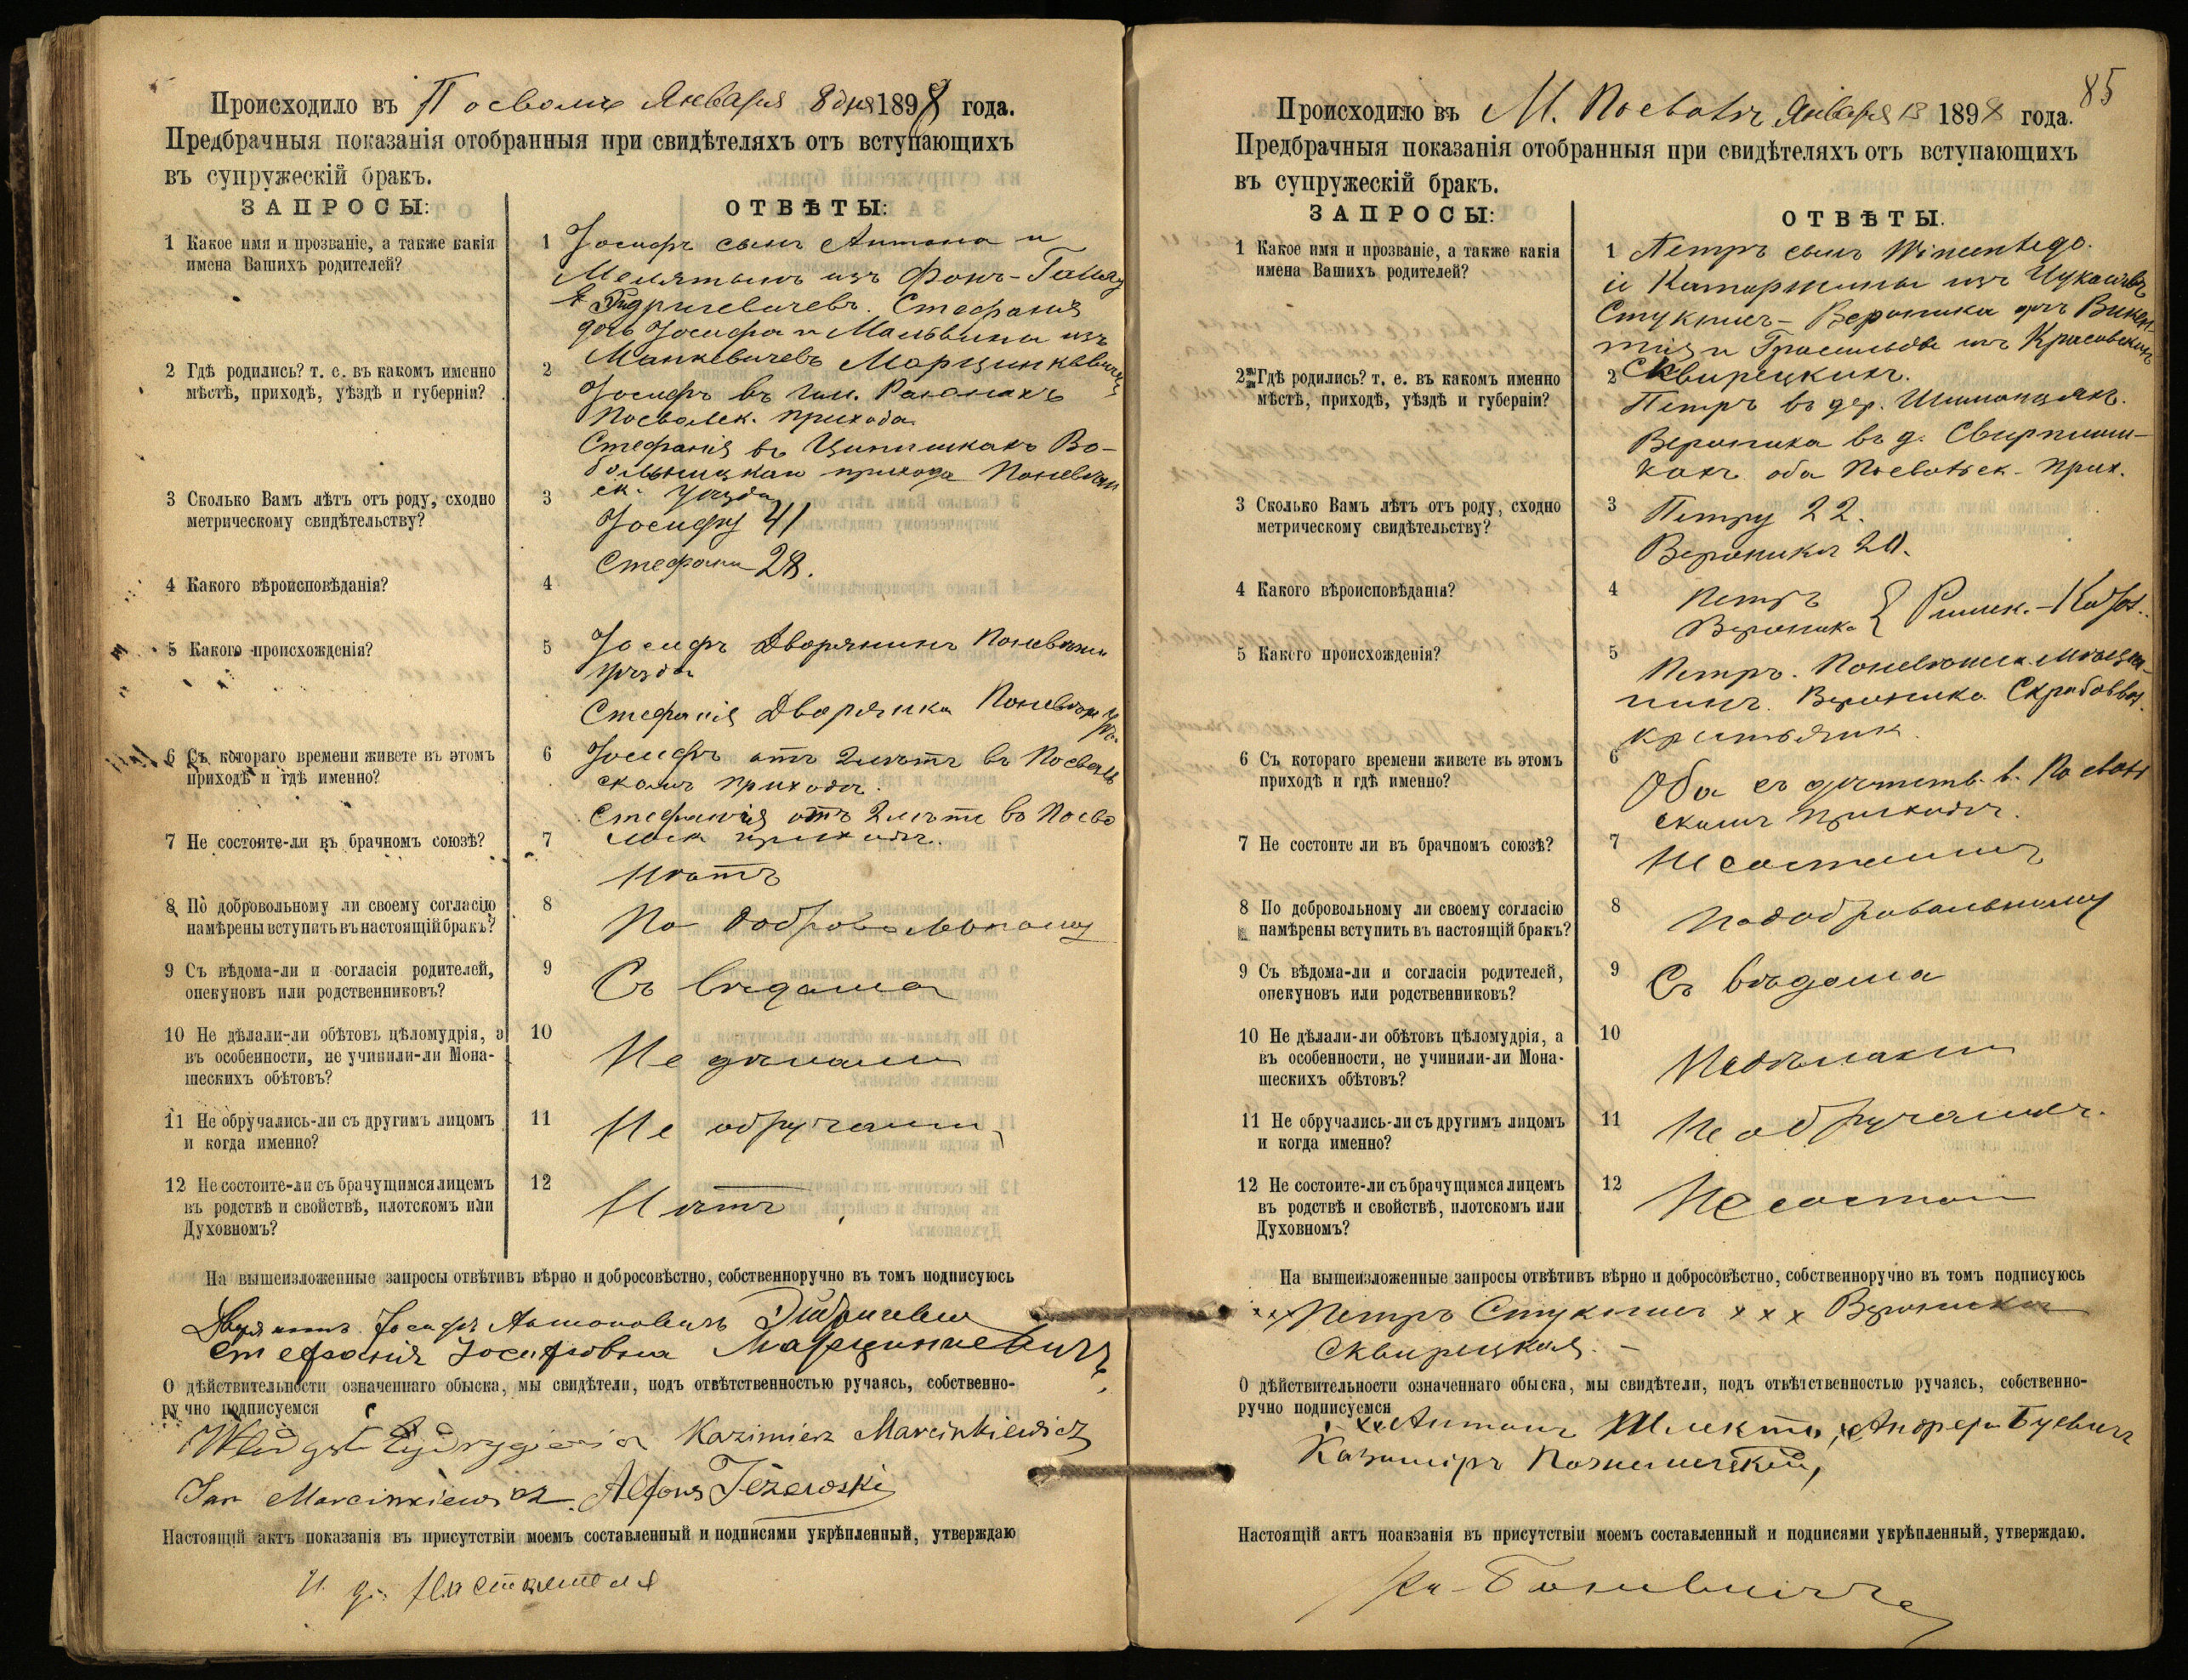 Происходило въ Посволѣ Января 8 дня 1898 года.
Предбрачныя показанія отобранныя при свидѣтеляхъ отъ вступающихъ
въ супружескій бракъ.
ЗАПРОСЫ:
ОТВѢТЫ:
1 Какое имя и прозваніе, а также какія
имена Вашихъ родителей?
1 Іосифъ сынъ Антона и
изъ Фонъ-
Стефанія
дочь Іосифа и Мальвины изъ
Манкевичевъ
2 Гдѣ родились? т. е. въ какомъ именно
мѣстѣ, приходѣ, уѣздѣ и губерніи?
2
Іосифъ въ
Посвольск. прихода
Стефанія въ
прихода
ск. уѣзда
3 Сколько Вамъ лѣтъ отъ роду, сходно
метрическому свидѣтельству?
3
Іосифу 41
Стефаніи 28.
4 Какого вѣроисповѣданія?
4
5 Какого происхожденія?
5 Іосифъ Дворянинъ
уѣзда
Стефанія Дворянка
6 Съ котораго времени живете въ этомъ
приходѣ и гдѣ именно?
6 Іосифъ отъ 2 лѣтъ въ Посволь
скомъ приходѣ.
Стефанія отъ 2 лѣтъ въ Посво
приходѣ.
7 Не состоите-ли въ брачномъ союзѣ?
7
Нѣтъ
8 По добровольному ли своему согласію
намѣрены вступить въ настоящій бракъ?
8
По добровольному
9 Съ вѣдома-ли и согласія родителей,
опекуновъ или родственниковъ?
9
Съ вѣдома
10 Не дѣлали-ли обѣтовъ цѣломудрія, а
въ особенности, не учинили-ли Мона-
шескихъ обѣтовъ?
10
Не дѣлали
11 Не обручались-ли съ другимъ лицомъ
и когда именно?
11
Не обручались
12 Не состоите-ли съ брачущимся лицемъ
въ родствѣ и свойствѣ, плотскомъ или
Духовномъ?
12
Нѣтъ
На вышеизложенные запросы отвѣтивъ вѣрно и добросовѣстно, собственноручно въ томъ подписуюсь
Дворянинъ Іосифъ Антоновичъ
Стефанія Іосифовна Марцинкевичъ
О дѣйствительности означеннаго обыска, мы свидѣтели, подъ отвѣтственностью ручаясь, собственно-
ручно подписуемся
Kazimierz Marcinkiewicz
Jan Marcinkiewicz. Alfons Jeżewski
Настоящій актъ показанія въ присутствіи моемъ составленный и подписями укрѣпленный, утверждаю
И. д. Настоятеля
85
Происходило въ М. Посволѣ Января 13 1898 года.
Предбрачныя показанія отобранныя при свидѣтеляхъ отъ вступающихъ
въ супружескій бракъ.
ЗАПРОСЫ:
ОТВѢТЫ.
1 Какое имя и прозваніе, а также какія
имена Вашихъ родителей?
1 Петръ сынъ Wincentego
и Катаржины изъ
Вероника дчь Викен-
тія и изъ
2 Гдѣ родились? т. е. въ какомъ именно
мѣстѣ, приходѣ, уѣздѣ и губерніи?
2
Петръ въ дер.
Вероника въ д.
оба прих.
3 Сколько Вамъ лѣтъ отъ роду, сходно
метрическому свидѣтельству?
3 Петру 22.
Вероникѣ 20.
4 Какого вѣроисповѣданія?
4 Петръ
Вероника } Римск.-Катол.
5 Какого происхожденія?
5 Петръ. мѣща-
нинъ. Вероника
крестьянк.
6 Съ котораго времени живете въ этомъ
приходѣ и гдѣ именно?
6
Оба съ дѣтств. в. Посволь
скомъ приходѣ.
7 Не состоите ли въ брачномъ союзѣ?
7
Не состоимъ
8 По добровольному ли своему согласію
намѣрены вступить въ настоящій бракъ?
8
По добровольному
9 Съ вѣдома-ли и согласія родителей,
опекуновъ или родственниковъ?
9 Съ вѣдома
10 Не дѣлали-ли обѣтовъ цѣломудрія, а
въ особенности, не учинили-ли Мона-
шескихъ обѣтовъ?
10
Не дѣлали
11 Не обручались-ли съ другимъ лицомъ
и когда именно?
11
Не обручались.
12 Не состоите-ли съ брачущимся лицемъ
въ родствѣ и свойствѣ, плотскомъ или
Духовномъ?
12
Не состоим
На вышеизложенные запросы отвѣтивъ вѣрно и добросовѣстно, собственноручно въ томъ подписуюсь
xxx Петръ x x x Вероника
Сквирецкая. -
О дѣйствительности означеннаго обыска, мы свидѣтели, подъ отвѣтственностью ручаясь, собственно-
ручно подписуемся
Антонъ Андрей
Казиміръ
Настоящій актъ поаказнія въ присутствіи моемъ составленный и подписями укрѣпленный, утверждаю.